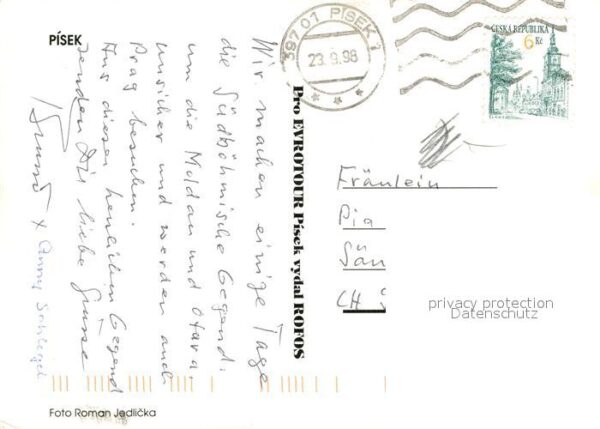 PÍSEK
397 01 PÍSEK 1
23.9.98
ČESKÁ REPUBLIKA
6 Kč
Wir machen einige Tage
die Südböhmische Gegend.
um die Moldau und Otava
unsicher und werden auch
Prag besuchen.
Aus dieser herrlichen Gegend
senden Dir liebe Grüsse
Anny Schlegel
Pro EVROTOUR Písek vydal ROFOS
Fräulein
Pia
Sän
CH
privacy protection
Datenschutz
Foto Roman Jedlička